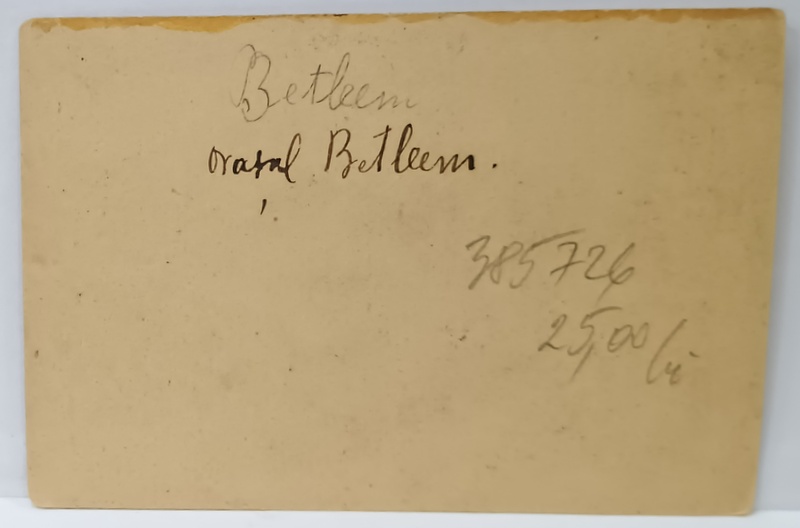 Betleem
orașul Betleem.
385726
25,00 lei